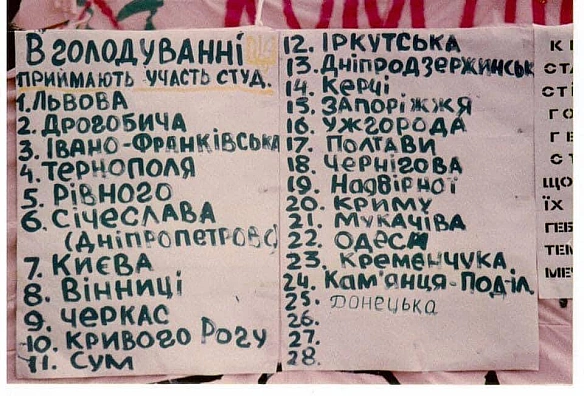 В ГОЛОДУВАННІ
ПРИЙМАЮТЬ УЧАСТЬ СТУД.
1. ЛЬВОВА
2. ДРОГОБИЧА
3. ІВАНО-ФРАНКІВСЬКА
4. ТЕРНОПОЛЯ
5. РІВНОГО
6. СІЧЕСЛАВА
(ДНІПРОПЕТРОВС
7. КИЄВА
8. ВІННИЦІ
9. ЧЕРКАС
10. КРИВОГО РОГУ
11. СУМ
12. ІРКУТСЬКА
13. ДНІПРОДЗЕРЖИНСЬК
14. КЕРЧІ
15. ЗАПОРІЖЖЯ
16. УЖГОРОДА
17. ПОЛТАВИ
18. ЧЕРНІГОВА
19. НАДВІРНОЇ
20. КРИМУ
21. МУКАЧІВА
22. ОДЕСИ
23. КРЕМЕНЧУКА
24. КАМ'ЯНЦЯ-ПОДІЛ.
25. ДОНЕЦЬКА
26.
27.
28.
ЩО
ЇХ